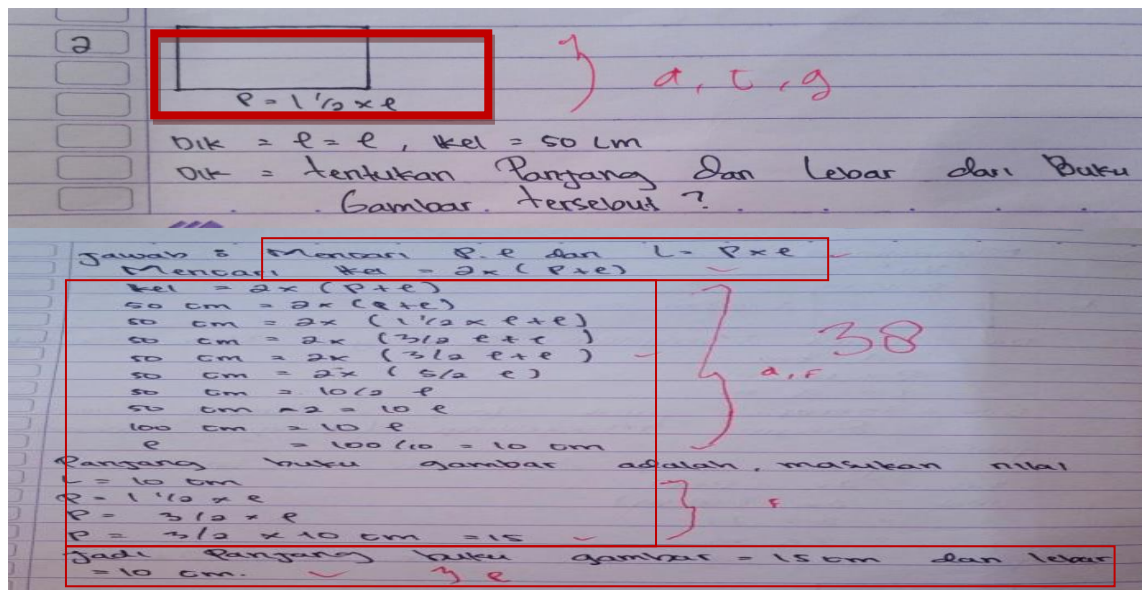 2
P = 1 1/2 x l
a, c, g
Dik = l = l, kel = 50 cm
Dik = tentukan Panjang dan lebar dari Buku
Gambar tersebut ?
Jawab : Mencari P.l dan L = P x l
Mencari kel = 2 x (P + l)
kel = 2 x (P + l)
50 cm = 2 x (P + l)
50 cm = 2 x (1 1/2 x l + l)
50 cm = 2 x (3/2 l + l)
50 cm = 2 x (3/2 l + l)
38
50 cm = 2 x (5/2 l)
a, f
50 cm = 10/2 l
50 cm x 2 = 10 l
100 cm = 10 l
l = 100/10 = 10 cm
Panjang buku gambar adalah, masukan nilai
L = 10 cm
P = 1 1/2 x l
P = 3/2 x l
P = 3/2 x 10 cm = 15
Jadi Panjang buku gambar = 15 cm dan lebar
= 10 cm.